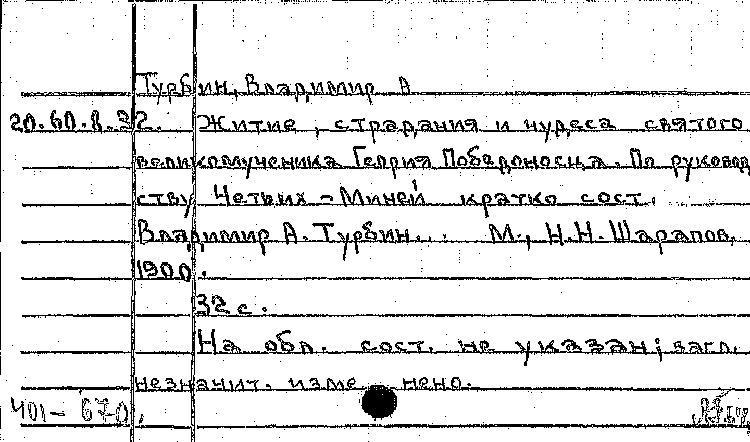 Турбин, Владимир А
20.60.8.32. Житие, страдания и чудеса святого
великомученика Георгия Победоносца. По руковод
ству Четьих-Миней кратко сост.
Владимир А. Турбин... М., Н.Н. Шарапов,
1900.
32 с.
На обл. сост. не указан; загл.
незначит. изме нено.
401-670